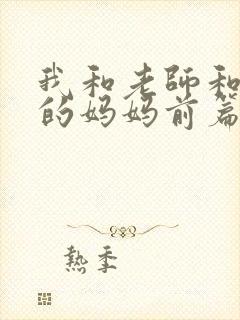 我和老師和
的妈妈前篇
熱季